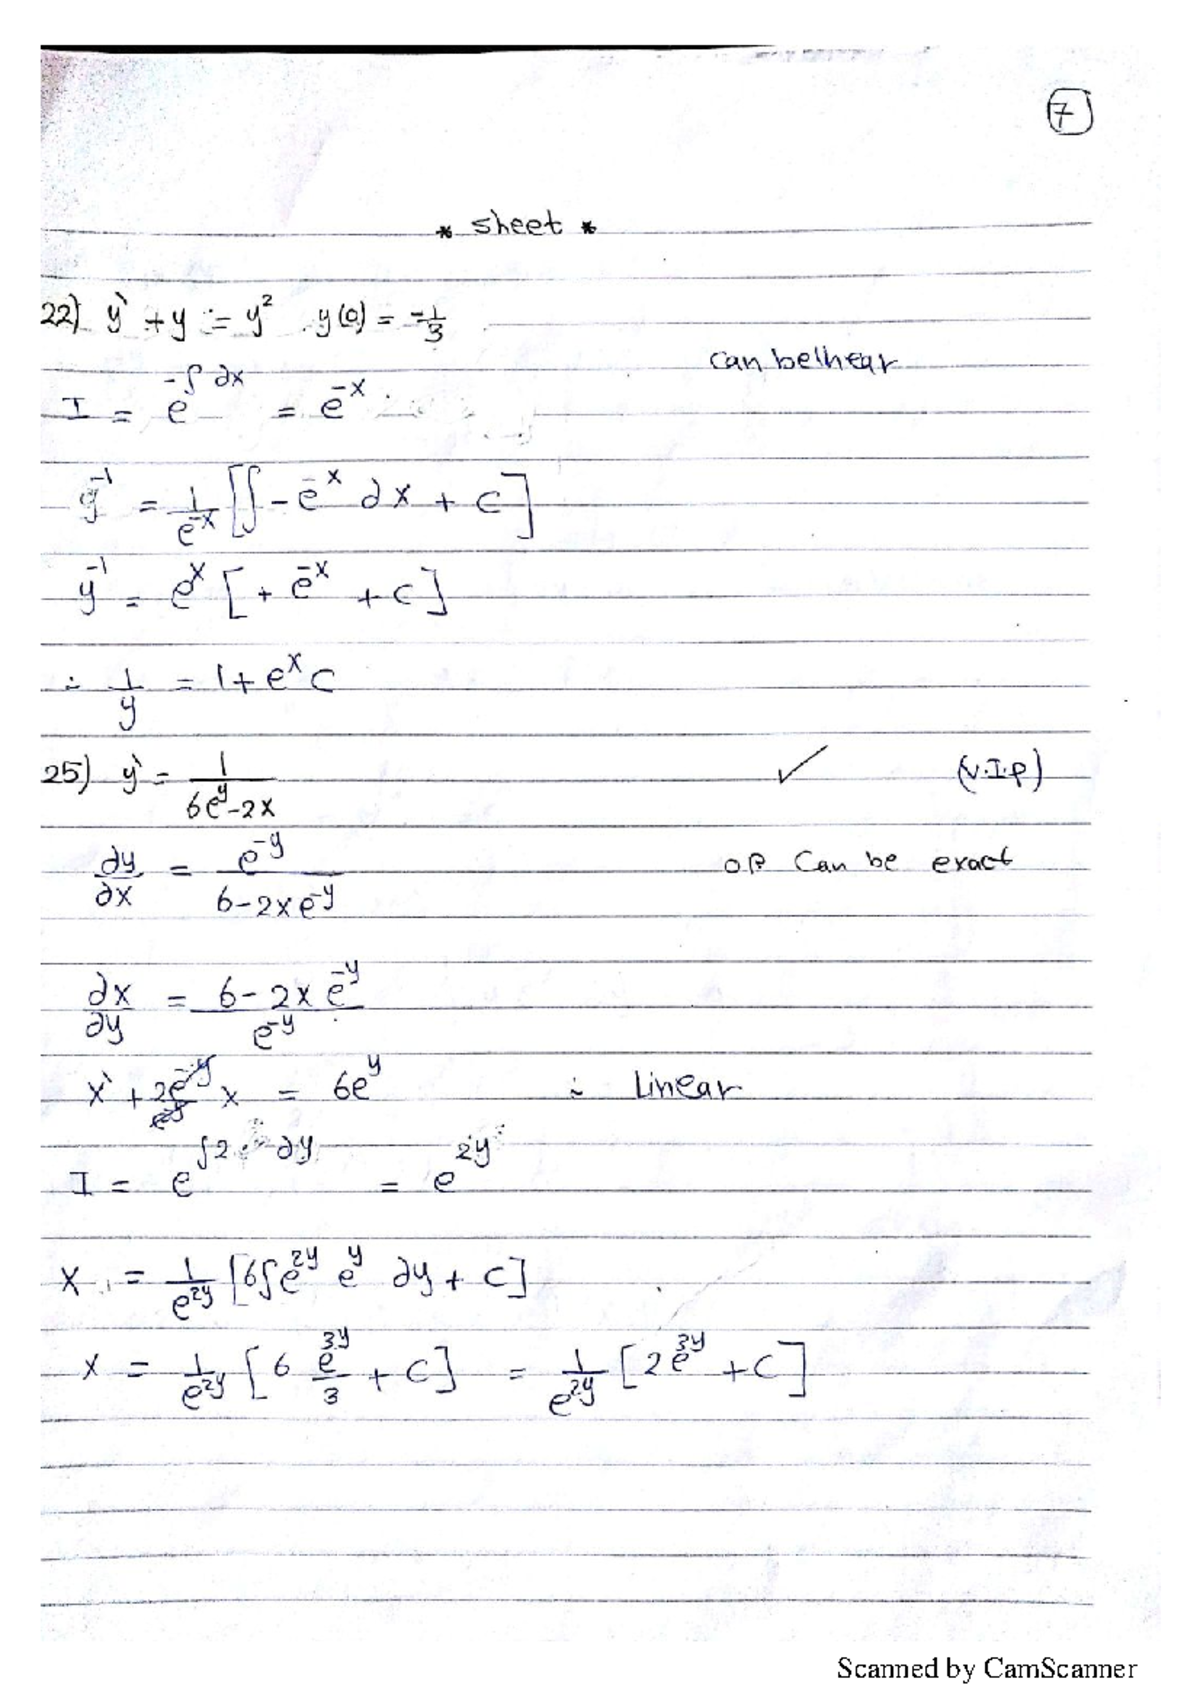 7
* sheet *
22) y` + y = y² . y(0) = -1/3
can be lhear
I = e^(-∫ ∂x) = e^(-x)
y^(-1) = 1/e^(-x) [∫ - e^(-x) ∂x + c]
y^(-1) = e^x [+ e^(-x) + c]
∴ 1/y = 1 + e^x c
25) y` = 1/(6e^y - 2x) ✓ (V.I.P)
∂y/∂x = e^(-y)/(6 - 2x e^(-y)) OR Can be exact
∂x/∂y = (6 - 2x e^(-y))/e^(-y)
x` + 2e^(-y)/e^(-y) x = 6e^y ∴ Linear
I = e^(∫2 ∂y) = e^(2y)
x = 1/e^(2y) [6∫e^(2y) e^y ∂y + c]
x = 1/e^(2y) [6 e^(3y)/3 + c] = 1/e^(2y) [2e^(3y) + c]
Scanned by CamScanner